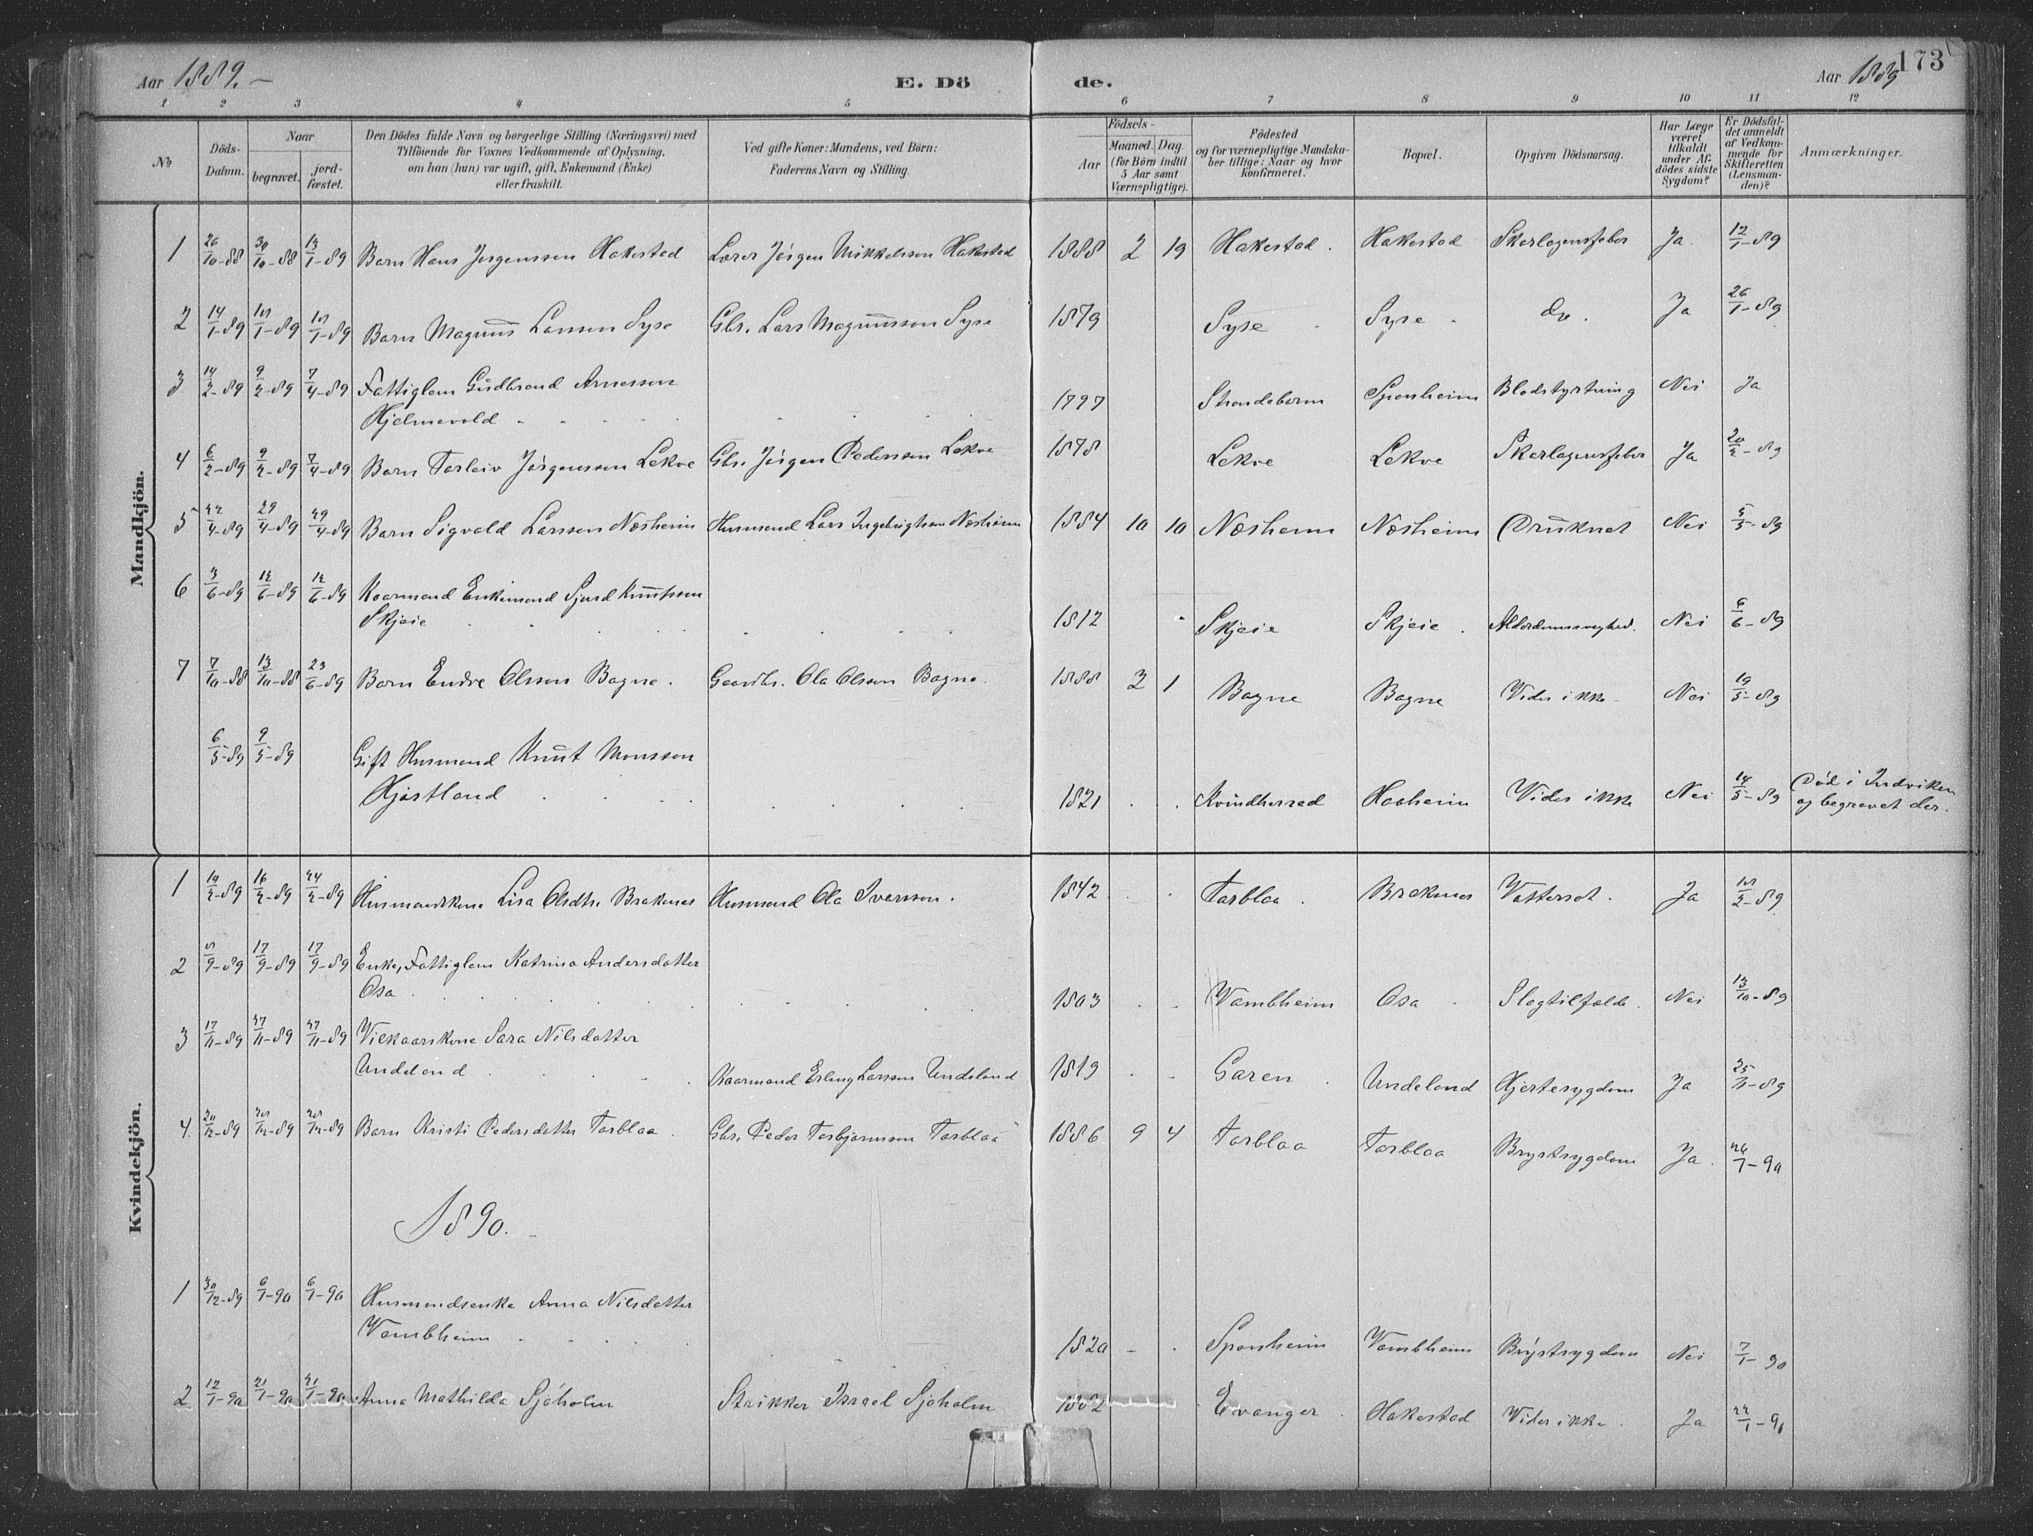 Aar 1889.
E. Dö
de.
Aar 1889
173
1 2 3 4 5 6 7 8 9 10 11 12
No
Döds-
Datum.
Naar
begravet.
jord-
fæstet.
Den Dödes fulde Navn og borgerlige Stilling (Næringsvei) med
Tilföiende for Voxnes Vedkommende af Oplysning,
om han (hun) var ugift, gift, Enkemand (Enke)
eller fraskilt.
Ved gifte Koner: Mandens, ved Börn:
Faderens Navn og Stilling.
Födsels-
Aar
Maaned.
Dag
(for Börn indtil
5 Aar samt
Værnepligtige).
Födested
og for værnepligtige Mandska-
ber tillige: Naar og hvor
konfirmeret.
Bopæl.
Opgiven Dödsaarsag.
Har Læge
været
tilkaldt
under Af-
dödes sidste
Sygdom?
Er Dödsfal-
det anmeldt
af Vedkom-
mende for
Skifteretten
(Lensman-
den)?
Anmærkninger.
Mandkjön.
1 26/10-88 30/10-88 13/1-89 Barn Hans Jørgenssen Hakestad Lærer Jørgen Mikkelssen Hakestad 1888 2 19 Hakestad. Hakestad Skarlagensfeber Ja. 12/1-89
2 14/1-89 18/1-89 18/1-89 Barn Magnus Larssen Syse Gbr. Lars Magnusson Syse 1879 Syse Syse do. Ja 26/1-89
3 14/2-89 9/2-89 7/4-89 Fattiglem Gudbrand Arnessen
Hjelmevold 1797 Strandebarm Sponheim Blodstyrtning Nei Ja
4 6/2-89 9/2-89 7/4-89 Barn Torleiv Jørgenssen Lekve Gbr. Jørgen Pederssen Lekve 1878 Lekve Lekve Skarlagensfeber Ja 20/2-89
5 22/4-89 29/4-89 29/4-89 Barn Sigvald Larssen Næsheim Husmand Lars Ingebrigtsen Næsheim 1884 10 10 Næsheim Næsheim Druknet Nei 5/5-89
6 3/6-89 12/6-89 12/6-89 Kaarmand Enkemand Sjurd Knutssen
Skjeie 1812 Skjeie Skjeie. Alderdomssvaghed. Nei 6/6-89
7 7/10-88 13/10-88 23/6-89 Barn Endre Olsson Bagne. Gaardbr. Ola Olsson Bagne. 1888 3 1 Bagne Bagne Vides ikke Nei 19/5-89
6/5-89 9/5-89 Gift Husmand Knut Monsson
Hjartland 1821 Kvindherred Haaheim Vides ikke Nei 14/5-89 Død i Indviken
og begravet der.
Kvindekjön.
1 10/2-89 16/2-89 24/2-89 Husmandskone Lisa Olsdtr. Braknes Husmand Ola Ivarsson. 1842 Torblaa. Braknes Vattersot. Ja 18/2-89
2 8/9-89 17/9-89 17/9-89 Enke, Fattiglem Katrina Andersdatter
Osa 1803 Vambheim Osa Slagtilfælde. Nei 13/10-89
3 17/11-89 27/11-89 27/11-89 Vilkaarskone Sara Nilsdatter
Undeland Kaarmand Erling Larssen Undeland 1819 Garen Undeland Hjertesygdom Ja 25/11-89
4. 20/12-89 28/12-89 28/12-89 Barn Kristi Pedersdatter Torblaa Gbr. Peder Torbjørnsson Torblaa 1886 9 4 Torblaa Torblaa Brystsygdom Ja. 26/1-90
1890.
1 30/12-89 6/1-90 6/1-90 Husmandsenke Anna Nilsdatter
Vambheim 1820 Sponheim Vambheim Brystsygdom Nei 7/1-90
2 12/1-90 21/1-90 21/1-90 Anna Mathilda Sjöholm Strikker Israel Sjöholm 1882 Evanger Hakestad Vides ikke. Ja 22/1-90